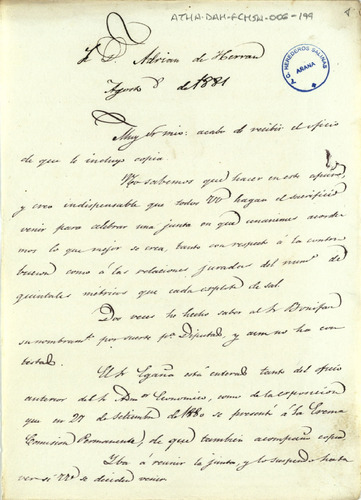 ATHA-DAH-FCMSH-006-199
T. G. HEREDEROS SALINAS
ARANA
S. D. Adrian de Herran
Agosto 8 de 1881
Muy Sr mio: acabo de recibir el oficio
de que le incluyo copia.
No sabemos que hacer en este apuro,
y creo indispensable que todos VV hagan el sacrificio
venir para celebrar una junta en que unanimes acorde
mos lo que mejor se crea, tanto con respecto á la contri
bucion como á las relaciones juradas del numo de
quintales métricos que cada copleto de sal
Dos veces he hecho saber al Sr Bonifaz
su nombramto por suerte pa Diputado, y aun no ha con
testado.
El Sr Egaña está enterado tanto del oficio
anterior del Sr Admor Economico, como de la esposicion
que en 27 de setiembre de 1880 se presentó á la Excma
Comision Permanente, de que tambien acompaño copia
Iba á reunir la junta, y lo suspendo hasta
ver si VV se deciden venir